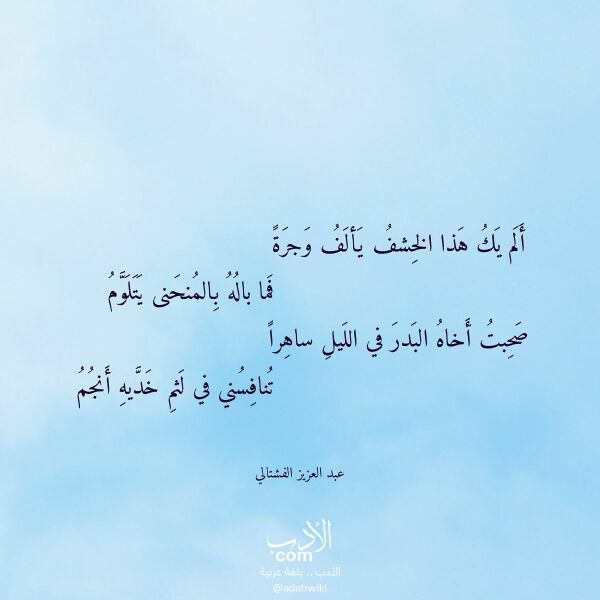 أَلَم يَكُ هَذا الخِشفُ يَألَفُ وَجرَةً
فَما بالُهُ بِالمُنحَنى يَتَلَوَّمُ
صَحِبتُ أَخاهُ البَدرَ في اللَيلِ ساهِراً
تُنافِسُني في لَثمِ خَدَّيهِ أَنجُمُ
عبد العزيز الفشتالي
الأدب
.com
الأدب .. بلغة عربية
@adabwiki